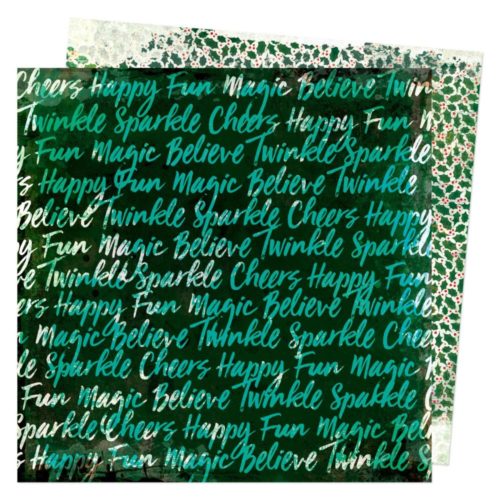 Cheers Happy Fun Magic Believe Twin
Twinkle Sparkle Cheers Happy Fun
y Fun Magic Believe Twinkle Sparkle
s Happy Fun Magic Believe Twinkle
Believe Twinkle Sparkle Cheers Happy
y Fun Magic Believe Twinkle Sparkl
e Twinkle Sparkle Cheers Happy Fun
rs Happy Fun Magic Believe Twinkle
n Magic Believe Twinkle Sparkle Chee
le Sparkle Cheers Happy Fun Magic
Fun Magic Believe Twinkle Sparkle
Sparkle Cheers Happy Fun Magic Be
s Happy Fun Magic Believe Twinkle S